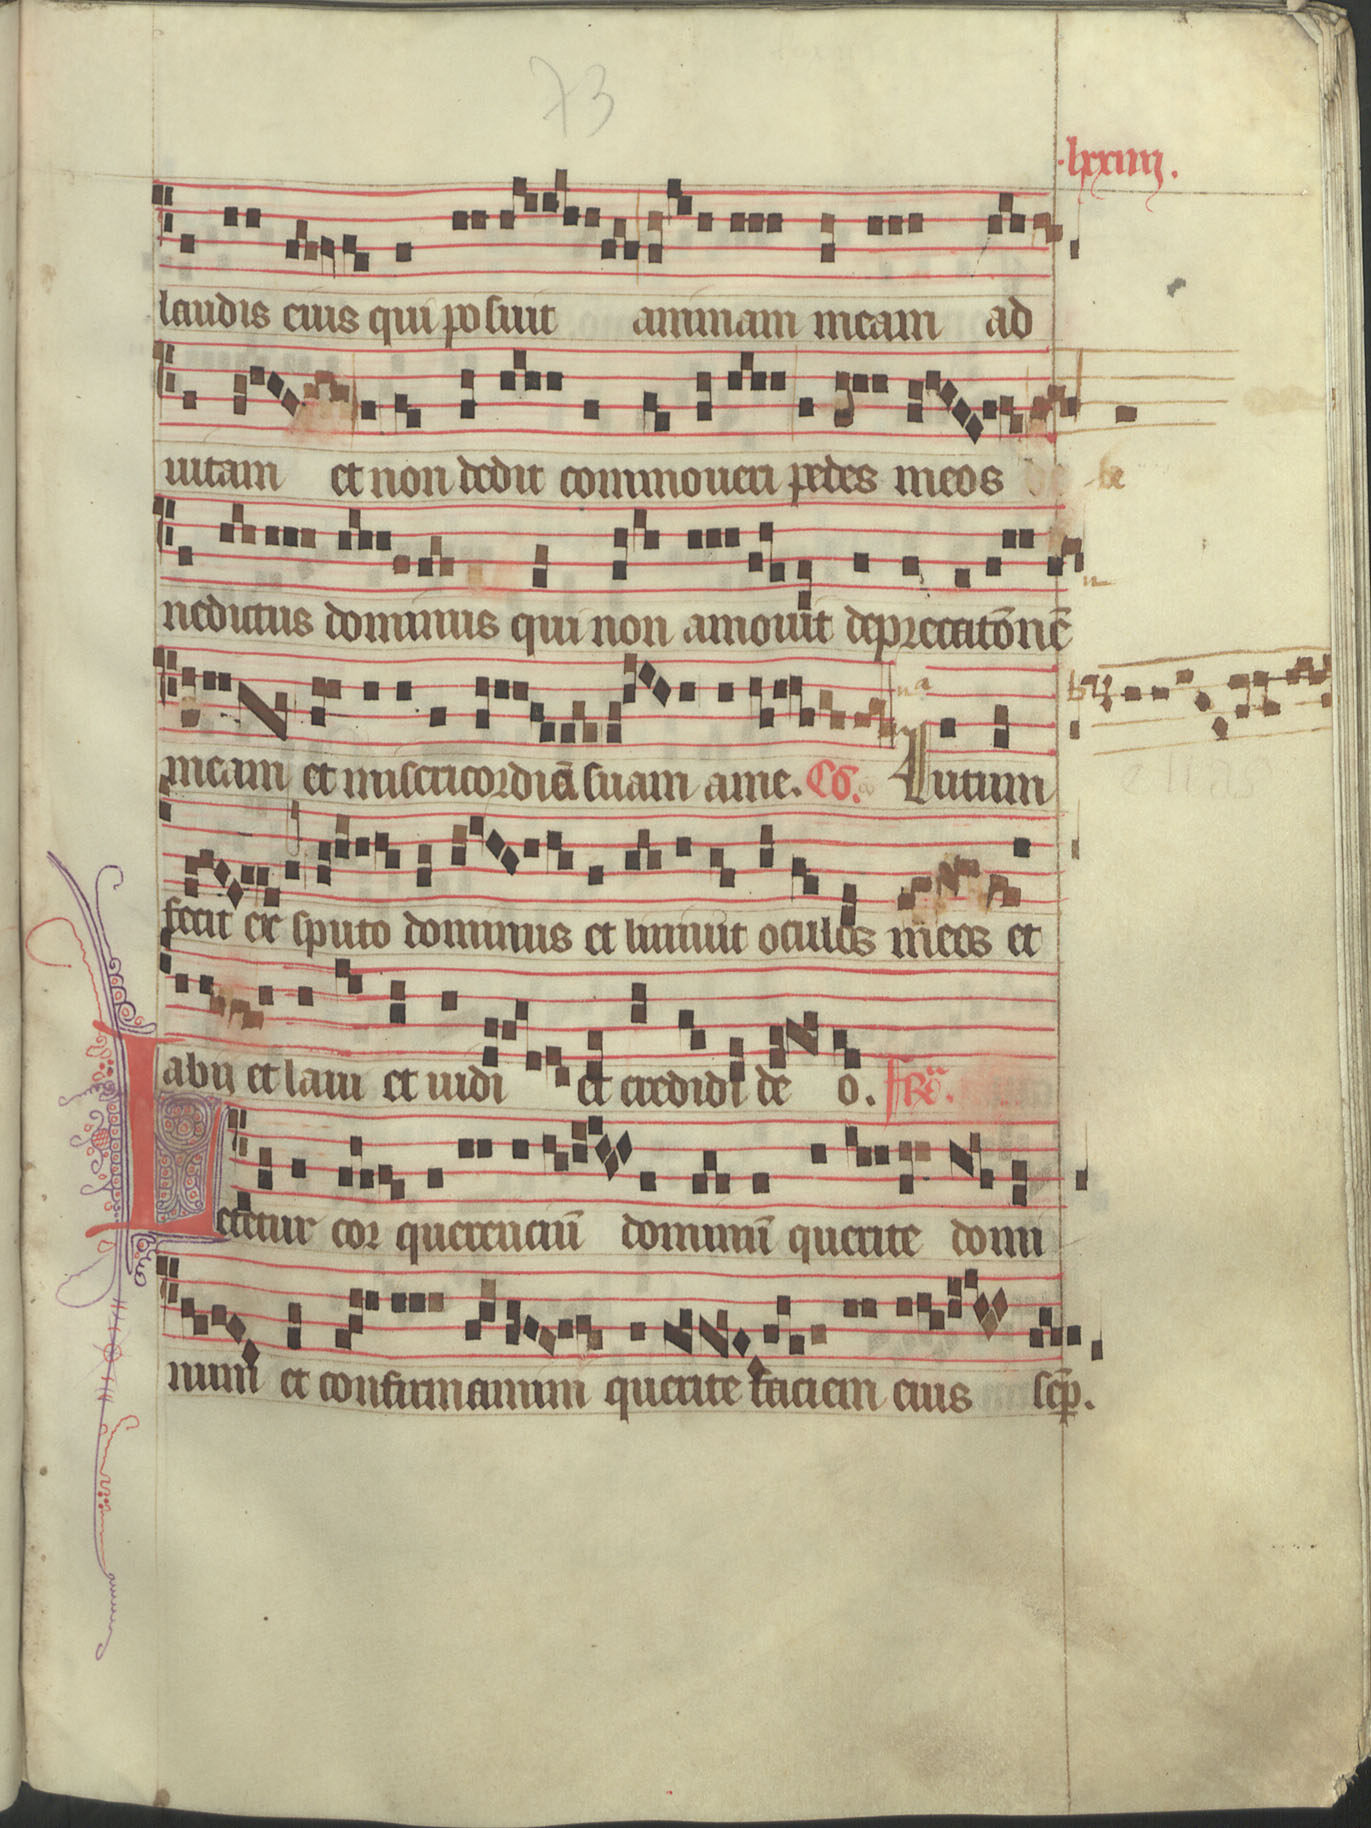 73
.lxxiiij.
laudis eius qui posuit animam meam ad
uitam et non dedit commoueri pedes meos be
nedictus dominus qui non amouit deprecatōnē
meam et misericordiā suam ame. Cō. Lutum
fecit ex sputo dominus et liniuit oculos meos et
abij et laui et uidi et credidi de o. Re.
Letetur cor querenciū dominū querite domi
num et confirmamini querite faciem eius semp.